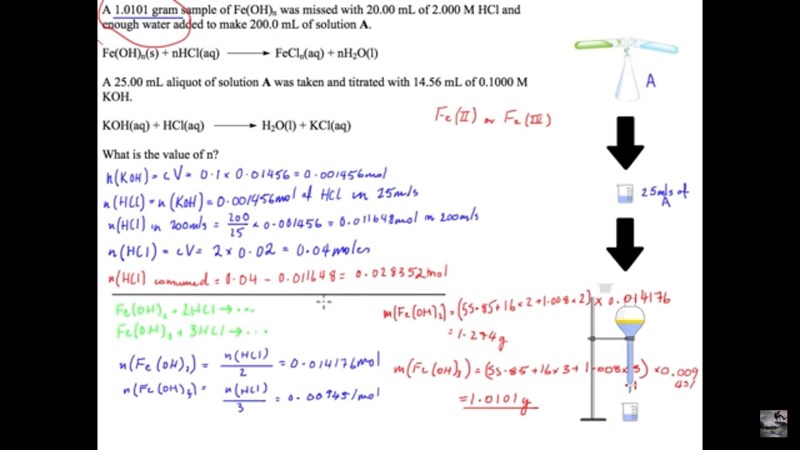 A 1.0101 gram sample of Fe(OH)n was missed with 20.00 mL of 2.000 M HCl and
enough water added to make 200.0 mL of solution A.
Fe(OH)n(s) + nHCl(aq) ⟶ FeCln(aq) + nH2O(l)
A
A 25.00 mL aliquot of solution A was taken and titrated with 14.56 mL of 0.1000 M
KOH.
Fe(II) or Fe(III)
KOH(aq) + HCl(aq) ⟶ H2O(l) + KCl(aq)
What is the value of n?
n(KOH) = cV = 0.1 x 0.01456 = 0.001456mol
n(HCl) = n(KOH) = 0.001456mol of HCl in 25mls
25mls of
A
n(HCl) in 200mls = 200/25 x 0.001456 = 0.011648mol in 200mls
n(HCl) = cV = 2 x 0.02 = 0.04 moles
n(HCl) consumed = 0.04 - 0.011648 = 0.028352mol
Fe(OH)2 + 2HCl → ...
Fe(OH)3 + 3HCl → ...
m(Fe(OH)2) = (55.85+16x2+1.008x2) x 0.014176
= 1.274g
n(Fe(OH)2) = n(HCl)/2 = 0.014176mol
m(Fe(OH)3) = (55.85+16x3+1.008x3) x0.009
451
n(Fe(OH)3) = n(HCl)/3 = 0.009451mol
= 1.0101g